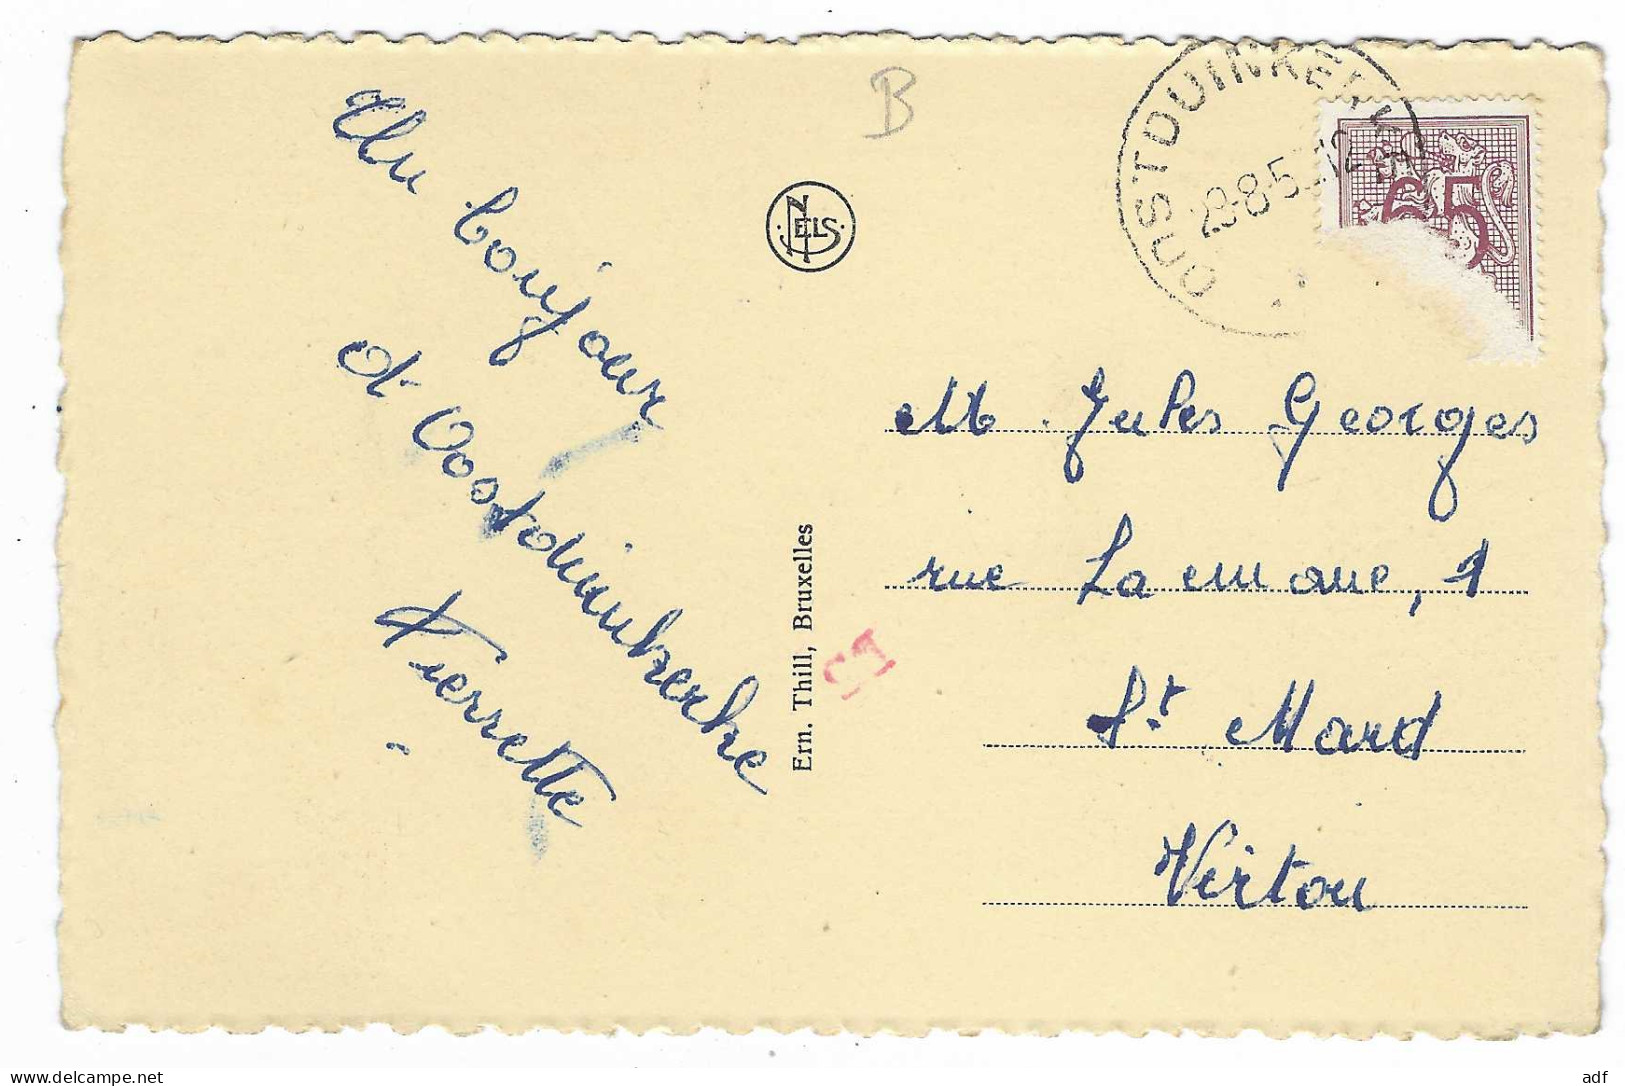 B
Un bonjour
d'Oostduinkerke
Pierrette
NELS
Ern. Thill, Bruxelles
OOSTDUINKERKE
28-8-5
65
M Jules Georges
rue
St Mard
Virton
delcampe.net
adf